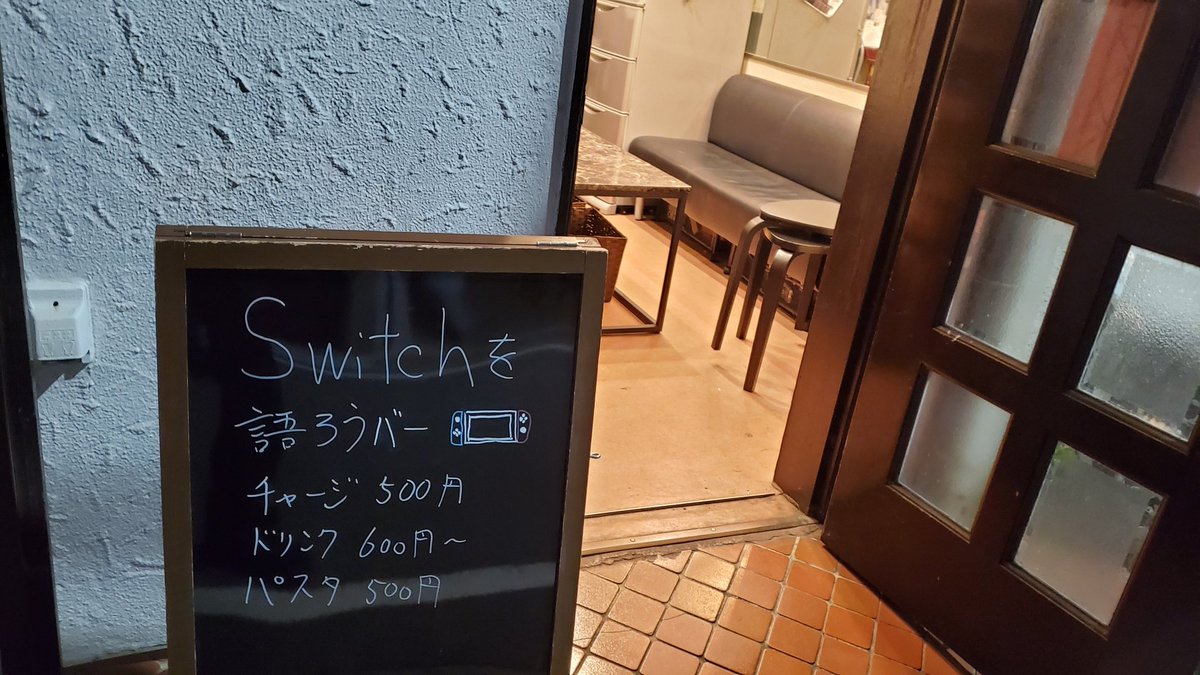 Switchを
語ろうバー
チャージ 500円
ドリンク 600円～
パスタ 500円